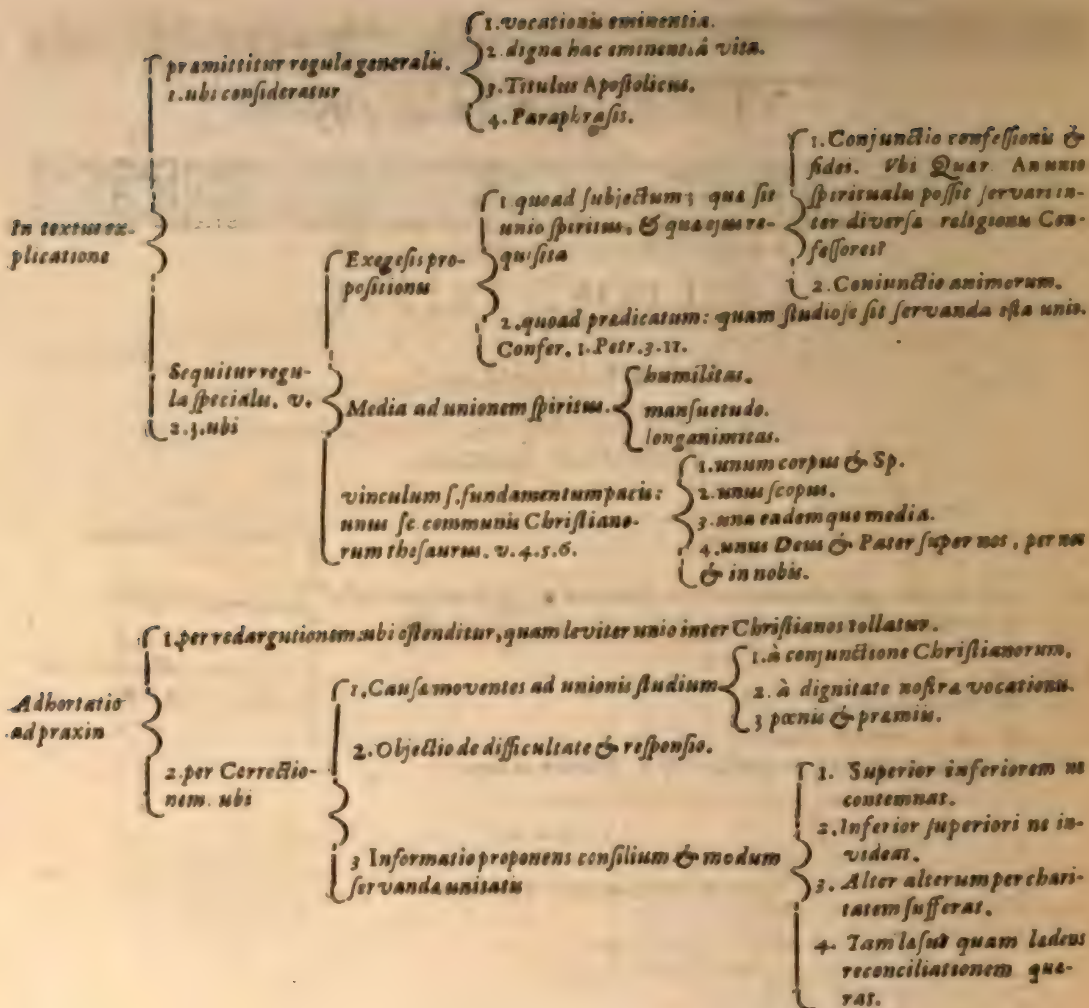 In textus ex-
plicatione
præmittitur regula generalis.
1. ubi consideratur
1. vocationis eminentia.
2. digna hac eminentiâ vita.
3. Titulus Apostolicus.
4. Paraphrasis.
Sequitur regu-
la specialis. v.
2.3. ubi
Exegesis pro-
positionis
1 quoad subjectum; quæ sit
unio spiritus, & quæ ejus re-
quisita
1. Conjunctio confessionis &
fidei. Vbi Quær. An unio
spiritualis possit servari in-
ter diversæ religionis Con-
fessores?
2. Coniunctio animorum.
2. quoad predicatum: quam studiose sit servanda ista unio.
Confer. 1. Petr. 3. 11.
Media ad unionem spiritus.
humilitas.
mansuetudo.
longanimitas.
vinculum s. fundamentum pacis:
unus sc. communis Christiano-
rum thesaurus. v. 4. 5. 6.
1. unum corpus & Sp.
2. unus scopus.
3. una eademque media.
4. unus Deus & Pater super nos, per nos
& in nobis.
Adhortatio
ad praxin
1. per redargutionem: ubi ostenditur, quam leviter unio inter Christianos tollatur.
2. per Correctio-
nem. ubi
1. Causæ moventes ad unionis studium
1. à conjunctione Christianorum.
2. à dignitate nostra vocationis.
3 pœnis & præmiis.
2. Objectio de difficultate & responsio.
3 Informatio proponens consilium & modum
servandæ unitatis
1. Superior inferiorem ne
contemnat.
2. Inferior superiori ne in-
videat.
3. Alter alterum per chari-
tatem sufferat.
4. Tam læsus quam lædens
reconciliationem quæ-
rat.